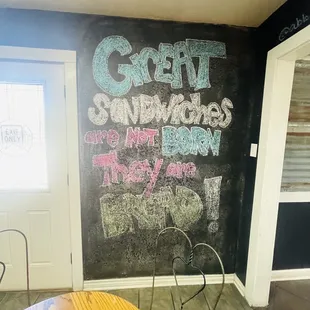 GREAT
SANDWICHES
are NOT BORN
They are
BREAD!